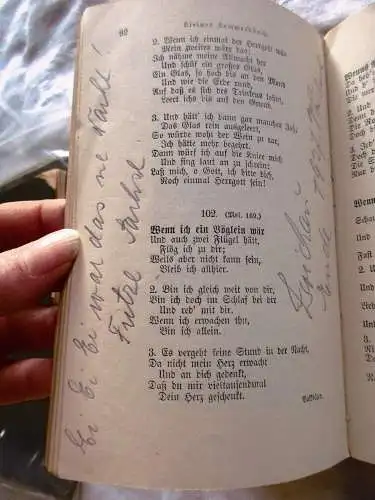 92
Kleines Kommersbuch.
2. Wenn ich einmal der Herrgott wär
Mein zweites wäre das:
Ich nähme meine Allmacht her
Und schüf ein großes Glas,
Ein Glas, so hoch bis an den Mond
Und wie die Erde
Auf daß es sich des Trinkens lohnt
Leert ichs bis auf den Grund.
3. Und hätt' ich dann gar manches Jahr
Das Glas rein ausgeleert,
So würde wohl der Wein zu
Ich hätte mehr begehrt.
Dann würf ich auf die Knie mich
Und fing laut an zu schrein:
Laß mich, o Gott, ich bitte dich,
Noch einmal Herrgott sein!
102. (Mel. 169.)
Wenn ich ein Vöglein wär
Und auch zwei Flügel hätt,
Flög ich zu dir;
Weils aber nicht kann sein,
Bleib ich allhier.
2. Bin ich gleich weit von dir,
Bin ich doch im Schlaf bei dir
Und red' mit dir.
Wenn ich erwachen thu,
Bin ich allein.
3. Es vergeht keine Stund in der Nacht,
Da nicht mein Herz erwacht
Und an dich gedenkt,
Daß du mir vieltausendmal
Dein Herz geschenkt.
Volkslied.
Ei Ei Ei war das ne Nacht!
Fritze Sachse